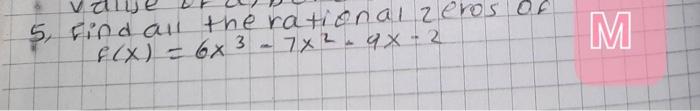 value of a, b
5, Find all the rational zeros of
f(x) = 6x³ - 7x² - 9x - 2
M